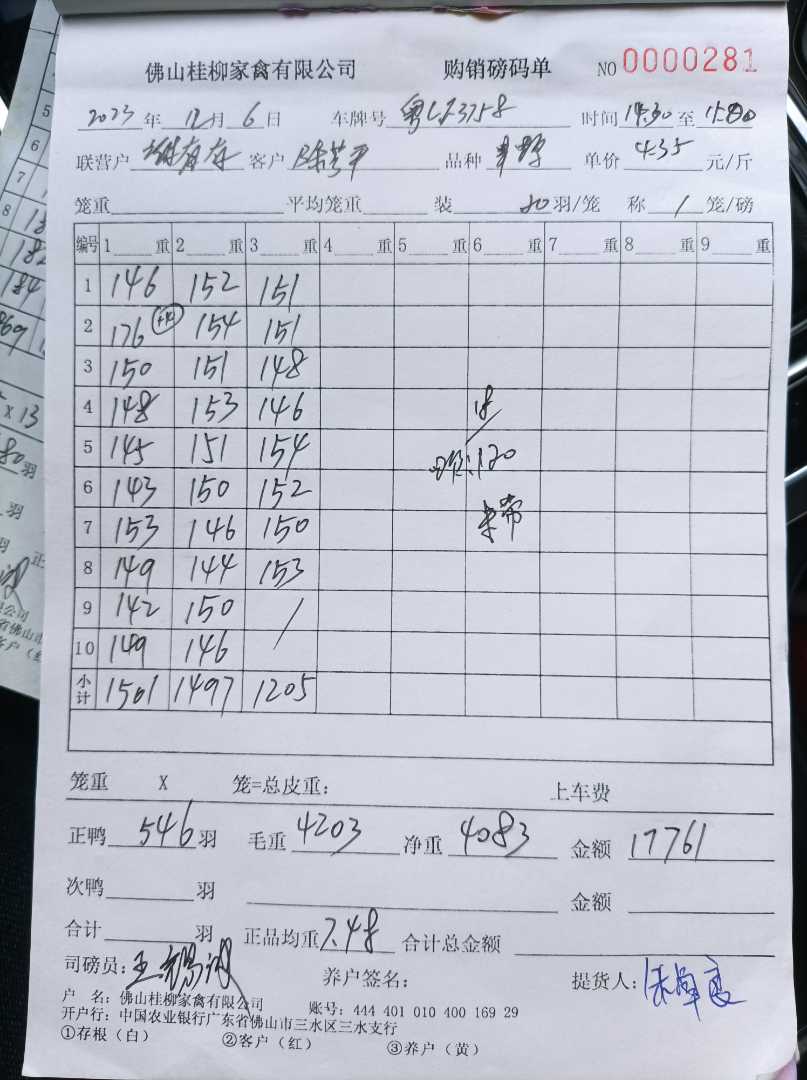 佛山桂柳家禽有限公司 购销磅码单 NO 0000281
2023年 12月 6日 车牌号 粤 3758 时间 14:30 至
联营户 客户 陈 平 品种 单价 4.35 元/斤
笼重 平均笼重 装 20 羽/笼 称 1 笼/磅
编号 1 重 2 重 3 重 4 重 5 重 6 重 7 重 8 重 9 重
1 146 152 151
2 176 154 151
3 150 151 148
4 148 153 146
5 145 151 154
6 143 150 152
7 153 146 150
8 149 144 153
9 142 150 /
10 149 146
小计 1501 1497 1205
18
120
笼重 X 笼=总皮重: 上车费
正鸭 546 羽 毛重 4203 净重 4083 金额 17761
次鸭 羽 金额
合计 羽 正品均重 7.48 合计总金额
司磅员: 王 养户签名: 提货人:
户 名: 佛山桂柳家禽有限公司 账号: 444 401 010 400 169 29
开户行: 中国农业银行广东省佛山市三水区三水支行
①存根(白) ②客户(红) ③养户(黄)
5
6
7
8
184
X 13
80 羽
羽